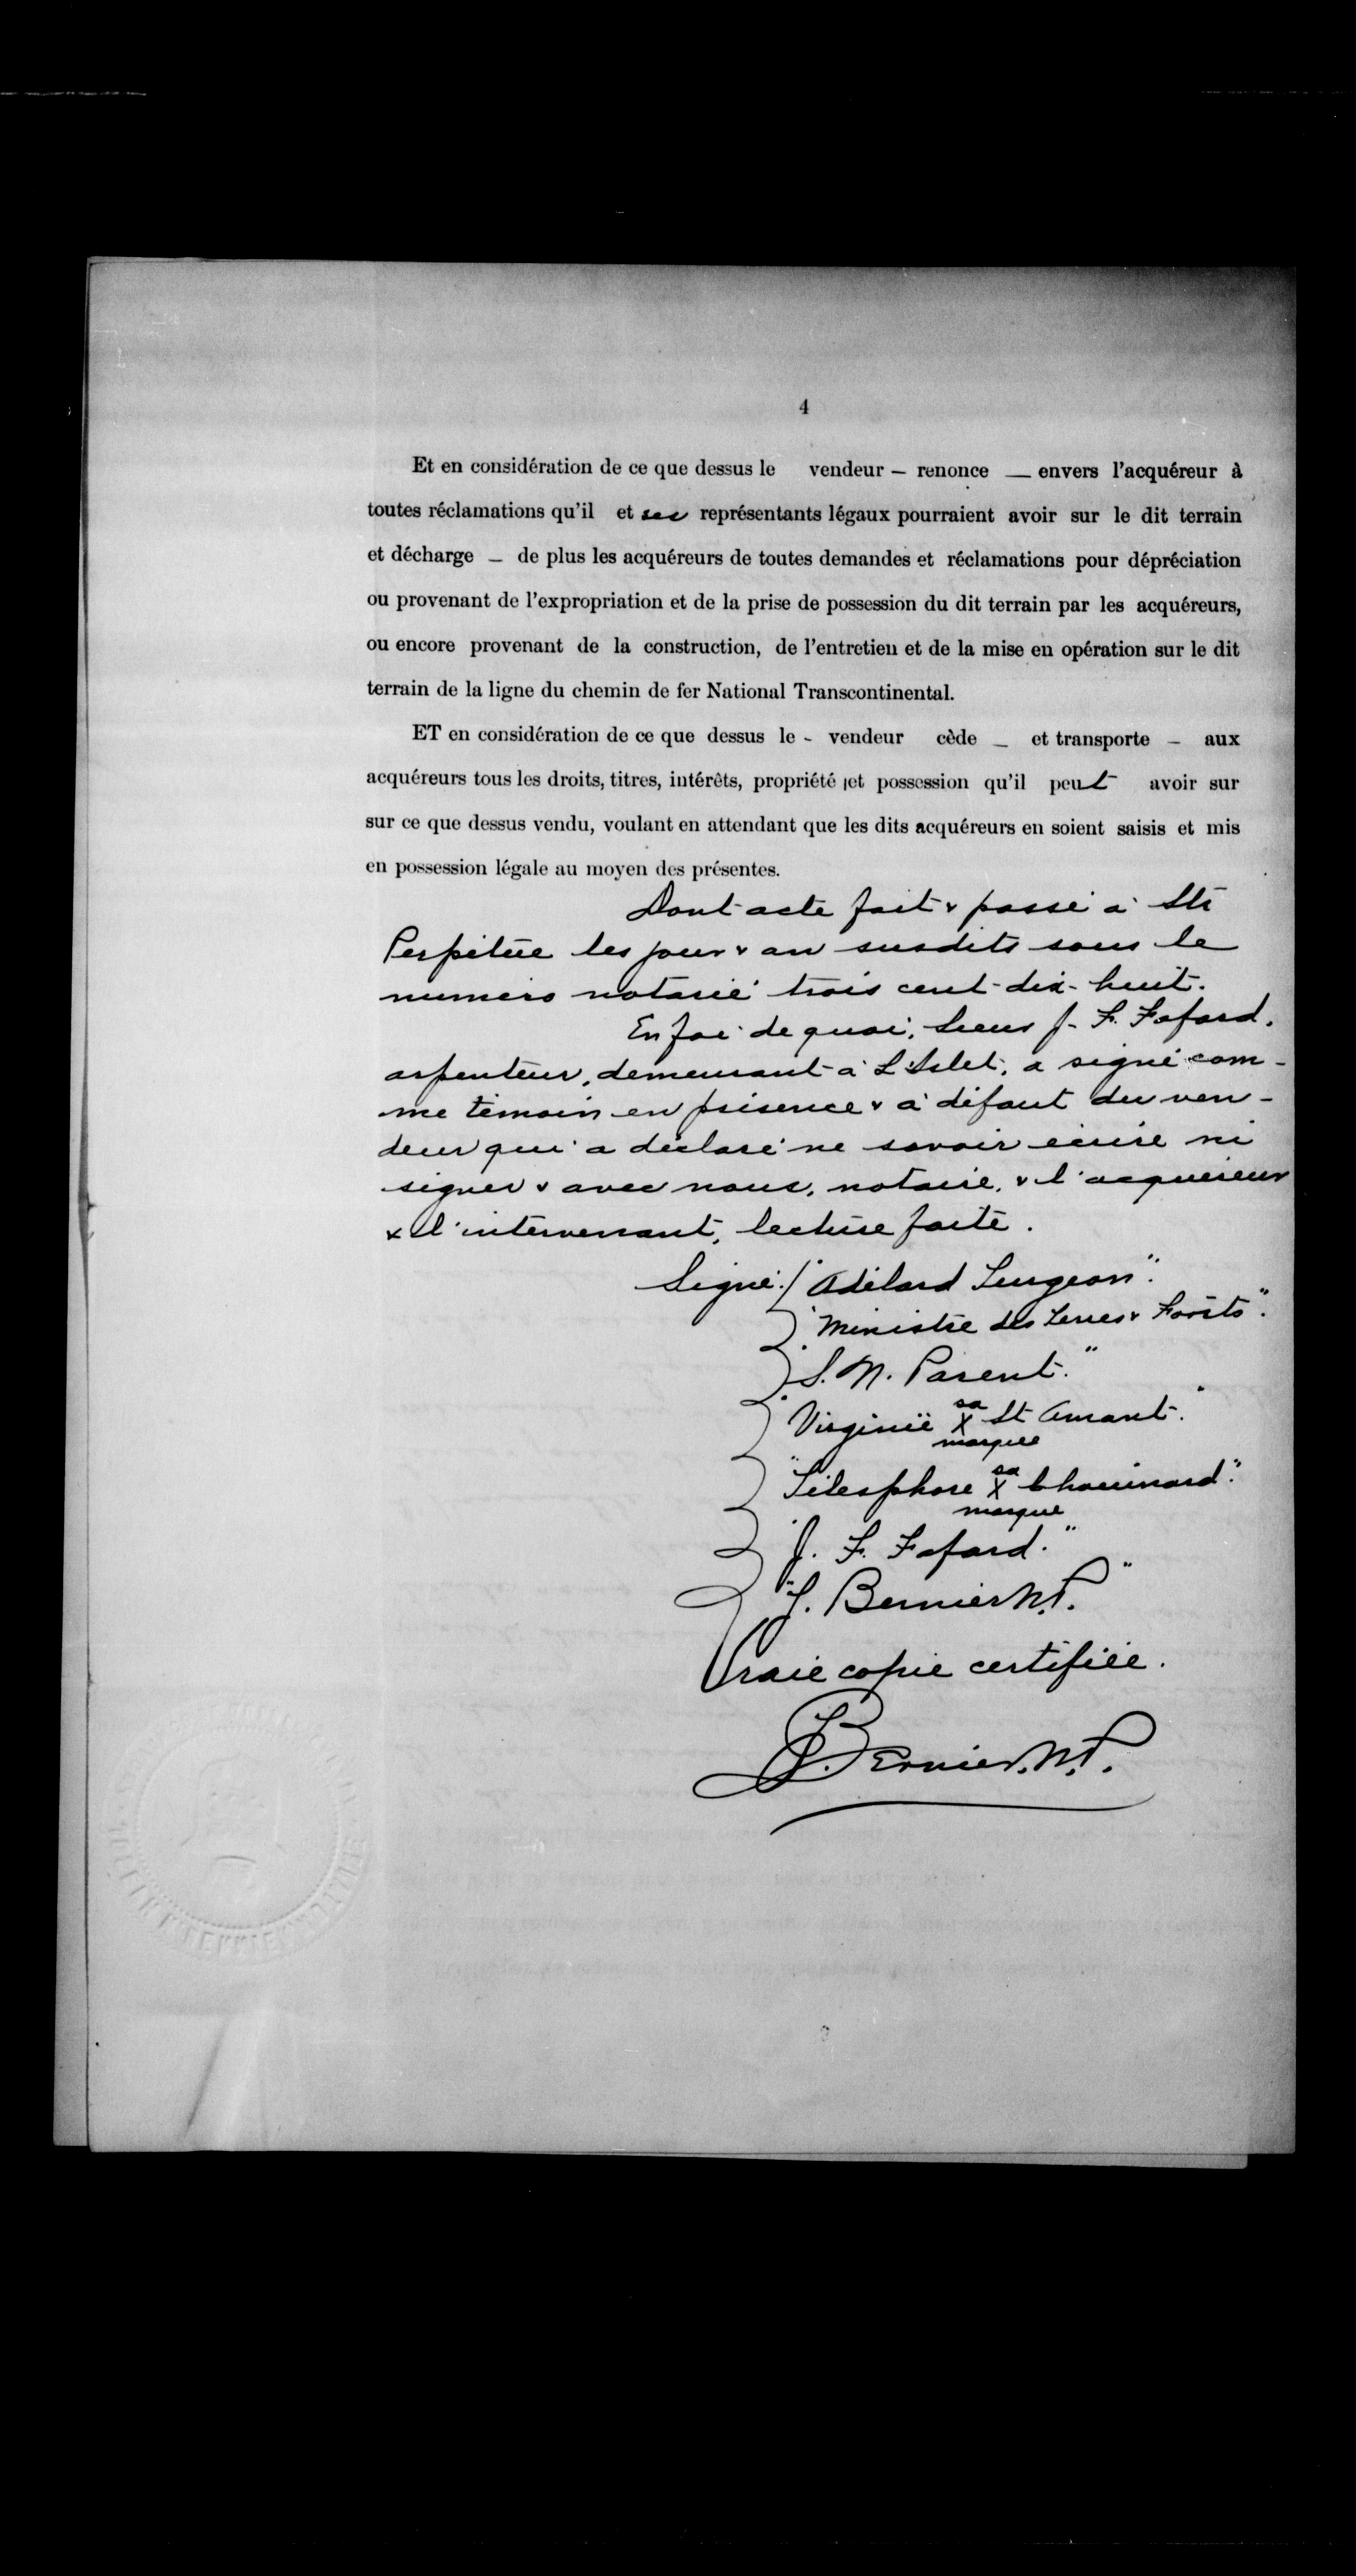 4
Et en considération de ce que dessus le vendeur — renonce — envers l'acquéreur à
toutes réclamations qu'il et ses représentants légaux pourraient avoir sur le dit terrain
et décharge — de plus les acquéreurs de toutes demandes et réclamations pour dépréciation
ou provenant de l'expropriation et de la prise de possession du dit terrain par les acquéreurs,
ou encore provenant de la construction, de l'entretien et de la mise en opération sur le dit
terrain de la ligne du chemin de fer National Transcontinental.
ET en considération de ce que dessus le - vendeur cède — et transporte — aux
acquéreurs tous les droits, titres, intérêts, propriété et possession qu'il peut avoir sur
sur ce que dessus vendu, voulant en attendant que les dits acquéreurs en soient saisis et mis
en possession légale au moyen des présentes.
Dont acte fait & passé à Ste
Perpétue les jour & an susdits sous le
numéro notarié trois cent-dix-huit.
En foi de quoi, Sieur J. F. Fafard,
arpenteur, demeurant à L'Islet, a signé com-
me témoin en présence & à défaut du ven-
deur qui a déclaré ne savoir écrire ni
signer & avec nous, notaire, & l'acquéreur
& l'intervenant, lecture faite.
Signé: "Adélard Turgeon".
"Ministre des Terres & Forêts".
"S. N. Parent."
"Virginie sa X marque St Amant."
"Télesphore sa X marque Chouinard."
"J. F. Fafard."
"J. Bernier N.P."
Vraie copie certifiée.
J. Bernier. N.P.